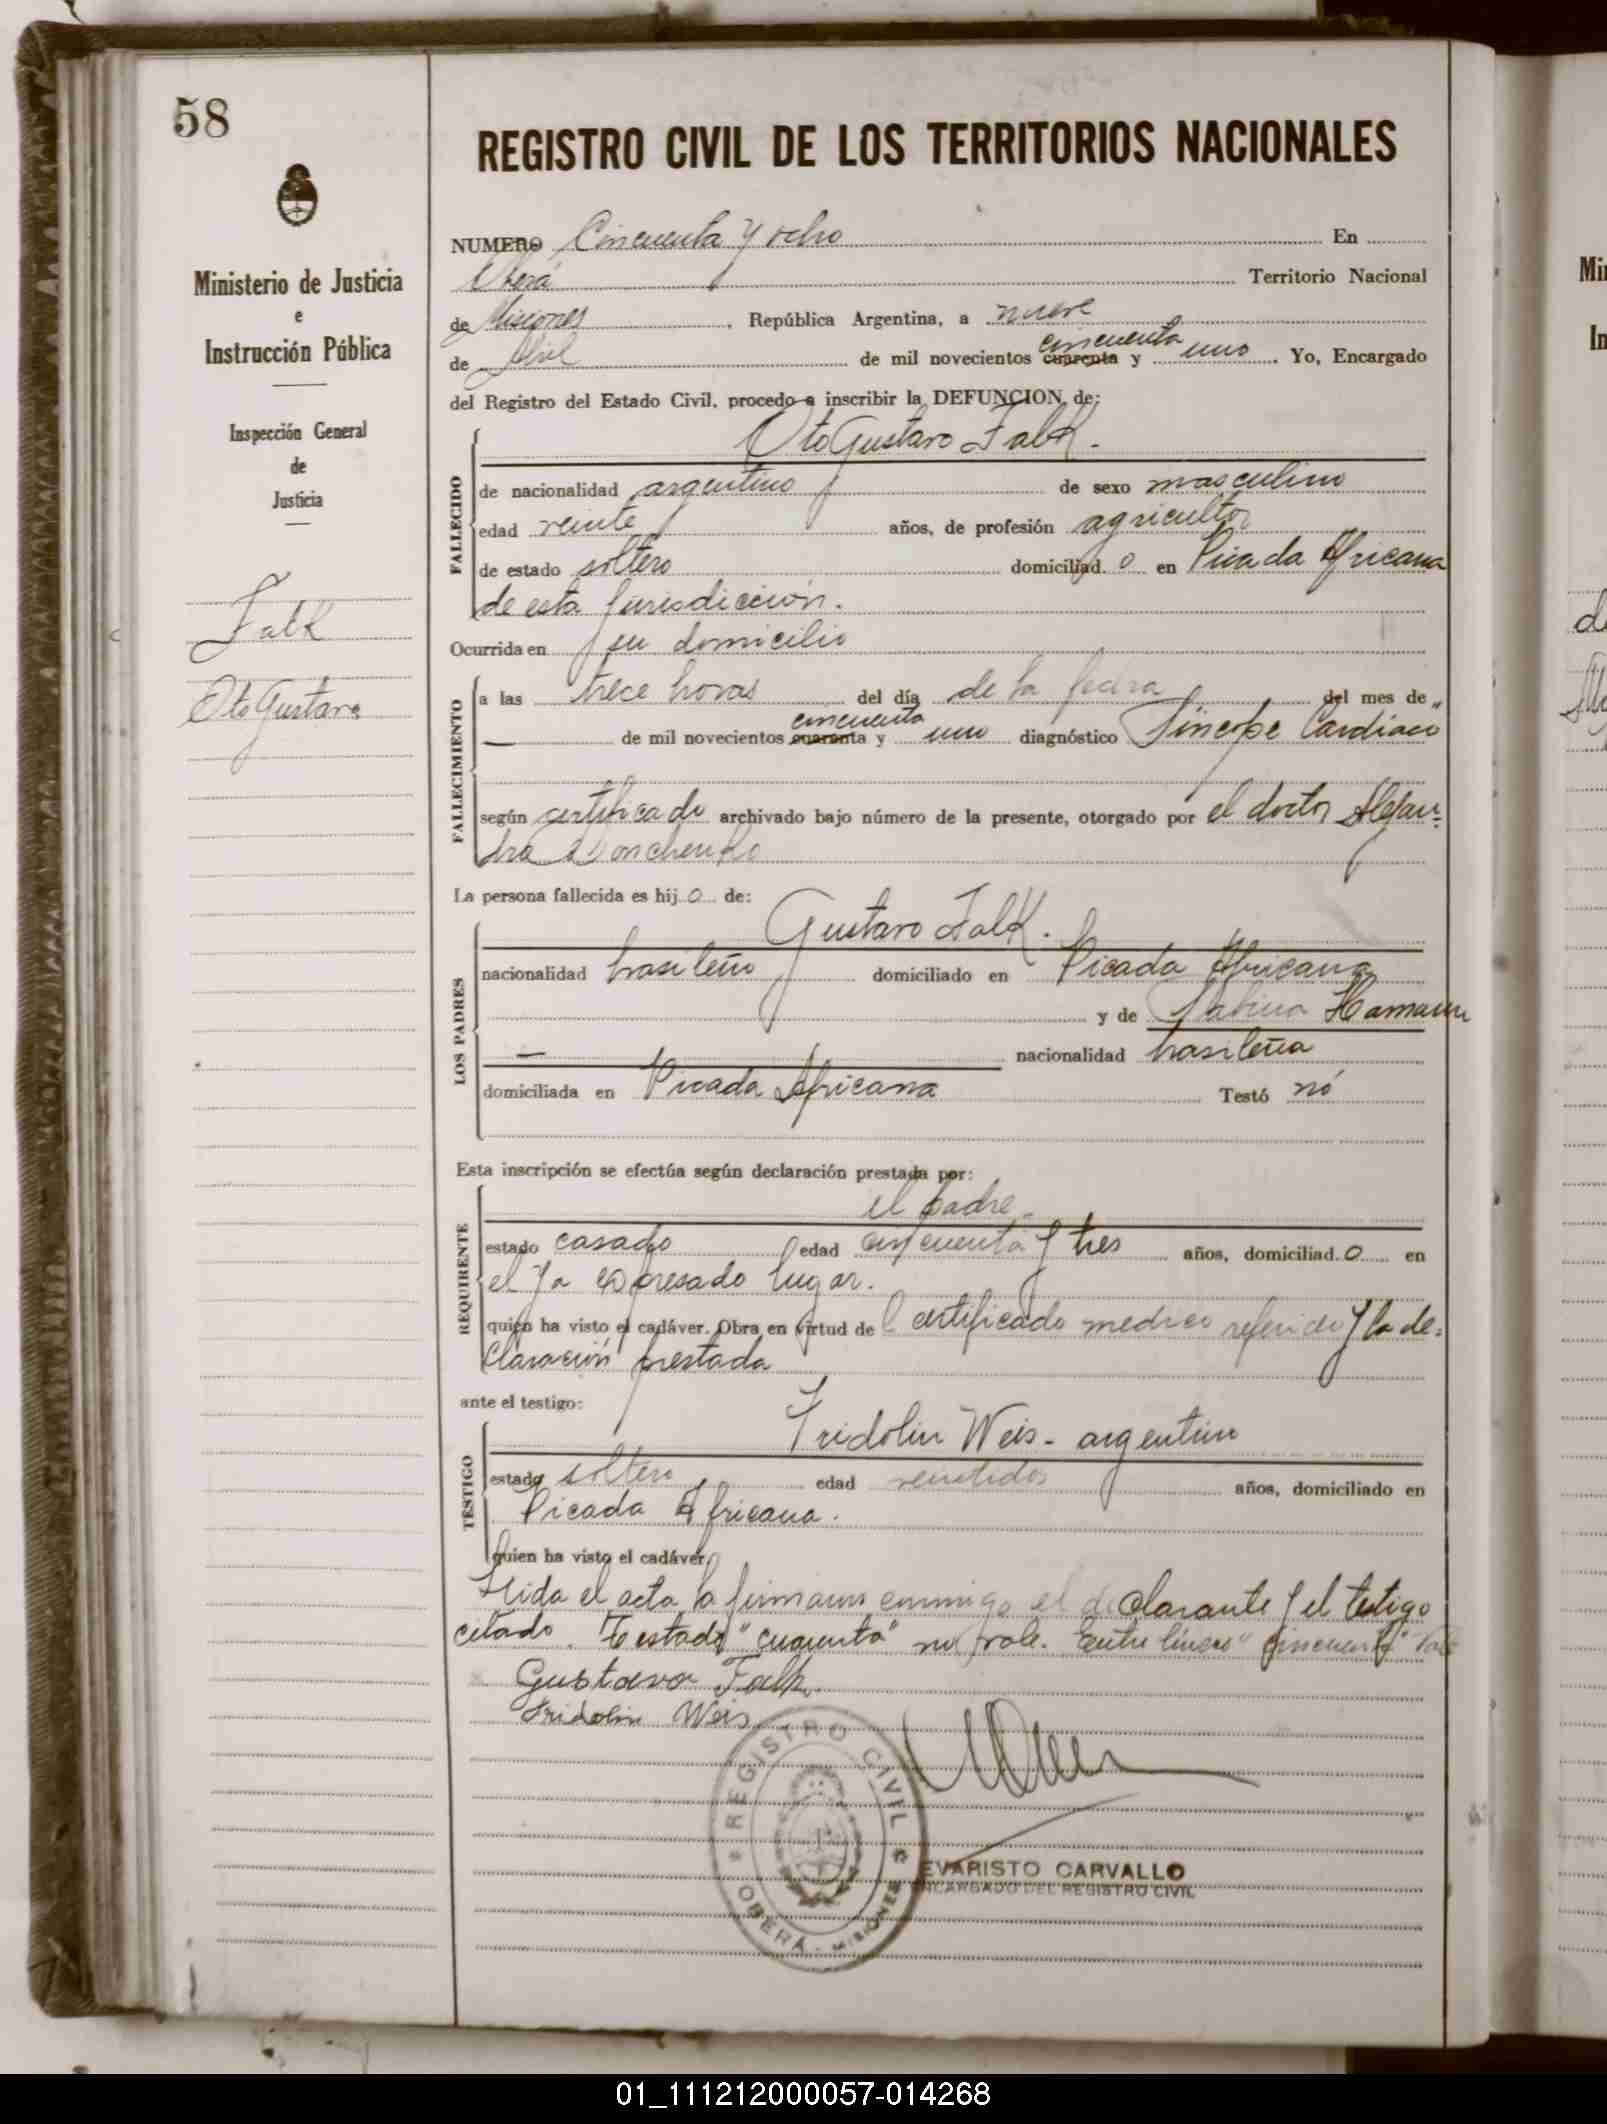 58
Ministerio de Justicia
e
Instrucción Pública
Inspección General
de
Justicia
Falk
Oto Gustavo
REGISTRO CIVIL DE LOS TERRITORIOS NACIONALES
NUMERO Cincuenta y ocho En
Oberá Territorio Nacional
de Misiones, República Argentina, a nueve
cincuenta
de Abril de mil novecientos cuarenta y uno. Yo, Encargado
del Registro del Estado Civil, procedo a inscribir la DEFUNCION de:
FALLECIDO
Oto Gustavo Falk.
de nacionalidad argentino de sexo masculino
edad veinte años, de profesión agricultor
de estado soltero domiciliad o en Picada Africana
de esta jurisdicción.
Ocurrida en su domicilio
FALLECIMIENTO
a las trece horas del día de la fecha del mes de
cincuenta
— de mil novecientos cuarenta y uno diagnóstico Síncope Cardíaco
según certificado archivado bajo número de la presente, otorgado por el doctor Alejan-
dro
La persona fallecida es hij o de:
LOS PADRES
Gustavo Falk.
nacionalidad brasileño domiciliado en Picada Africana
y de Sabina Hamann
— nacionalidad brasileña
domiciliada en Picada Africana Testó nó
Esta inscripción se efectúa según declaración prestada por:
REQUIRENTE
el padre-
estado casado edad cincuenta y tres años, domiciliad o en
el ya expresado lugar.
quien ha visto el cadáver. Obra en virtud de l certificado medico referido y la de-
claración prestada
ante el testigo:
TESTIGO
Fridolin Weis - argentino
estado soltero edad veintidos años, domiciliado en
Picada Africana.
quien ha visto el cadáver.
Leida el acta la firmaron conmigo el declarante y el testigo
citado. Testado "cuarenta" no vale. Entre líneas "cincuenta" Vale
Gustavo Falk.
Fridolin Weis
REGISTRO CIVIL
OBERÁ - MISIONES
EVARISTO CARVALLO
ENCARGADO DEL REGISTRO CIVIL
01_111212000057-014268